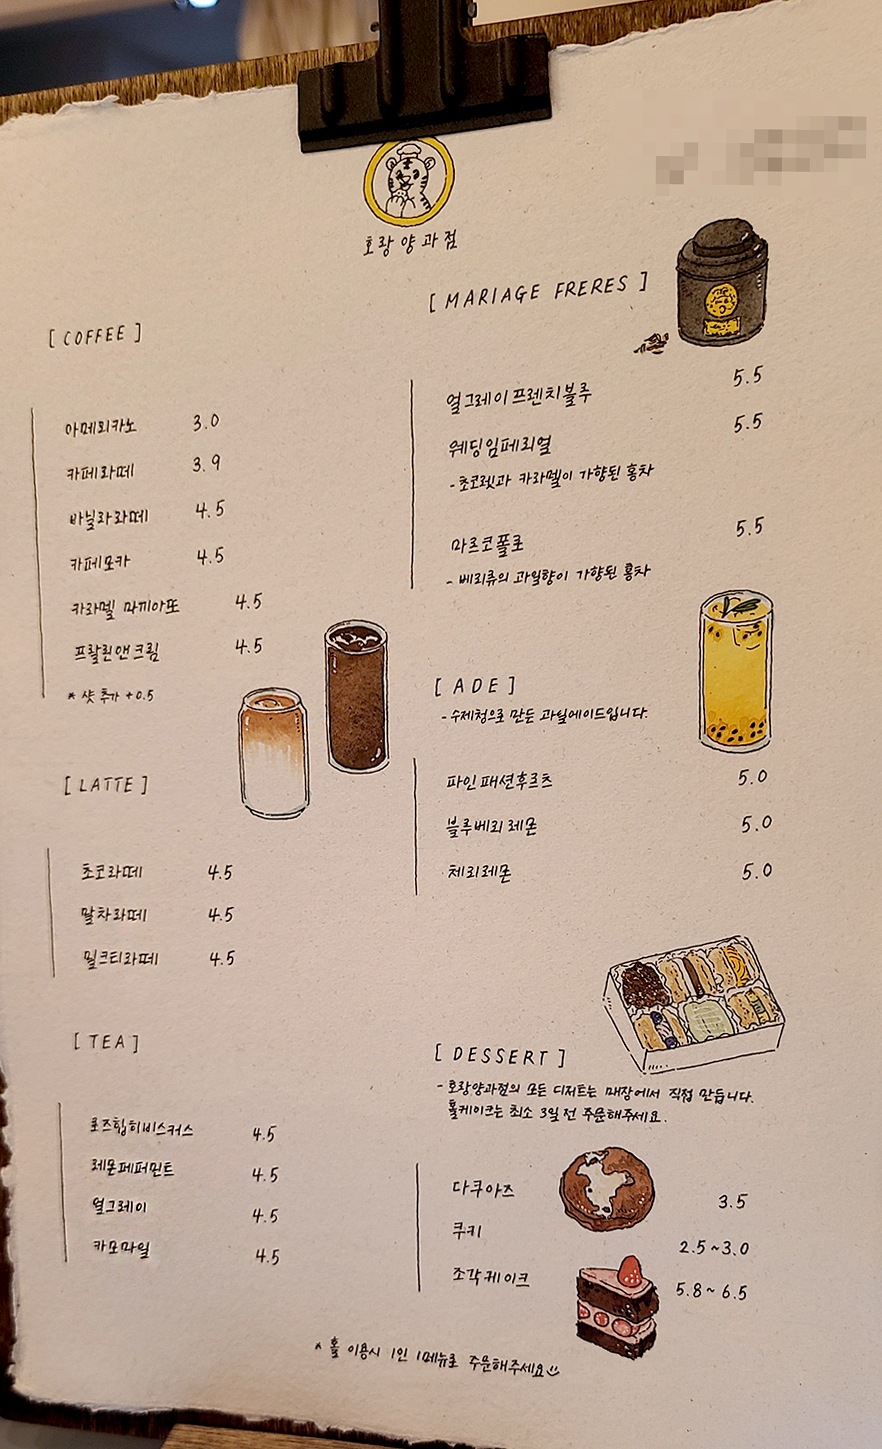 호랑양과점
[ COFFEE ]
아메리카노 3.0
카페라떼 3.9
바닐라라떼 4.5
카페모카 4.5
카라멜 마끼아또 4.5
프랄린앤크림 4.5
* 샷 추가 +0.5
[ LATTE ]
초코라떼 4.5
말차라떼 4.5
밀크티라떼 4.5
[ TEA ]
로즈힙히비스커스 4.5
레몬페퍼민트 4.5
얼그레이 4.5
카모마일 4.5
[ MARIAGE FRERES ]
얼그레이프렌치블루 5.5
웨딩임페리얼 5.5
- 초코렛과 카라멜이 가향된 홍차
마르코폴로 5.5
- 베리류의 과일향이 가향된 홍차
[ ADE ]
- 수제청으로 만든 과일에이드입니다.
파인패션후르츠 5.0
블루베리레몬 5.0
체리레몬 5.0
[ DESSERT ]
- 호랑양과점의 모든 디저트는 매장에서 직접 만듭니다.
홀케이크는 최소 3일 전 주문해주세요.
다쿠아즈 3.5
쿠키 2.5~3.0
조각케이크 5.8~6.5
* 홀 이용시 1인 1메뉴로 주문해주세요